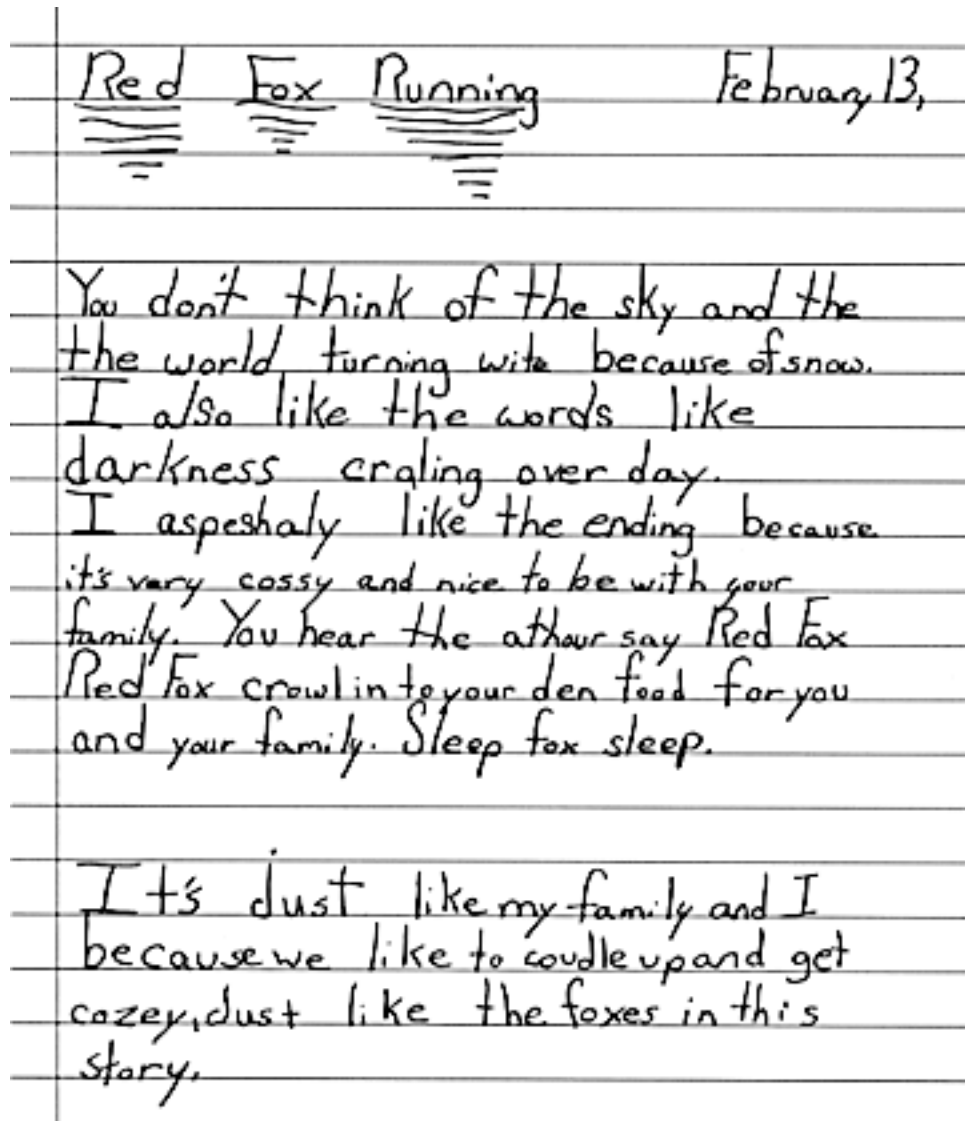 Red Fox Running February, 13,
You don't think of the sky and the
the world turning wite because of snow.
I also like the words like
darkness craling over day.
I aspeshaly like the ending because
it's very cossy and nice to be with your
family. You hear the athour say Red Fox
Red Fox crowl in to your den food for you
and your family. Sleep fox sleep.
It's just like my family and I
because we like to coudle up and get
cozey, just like the foxes in this
story.